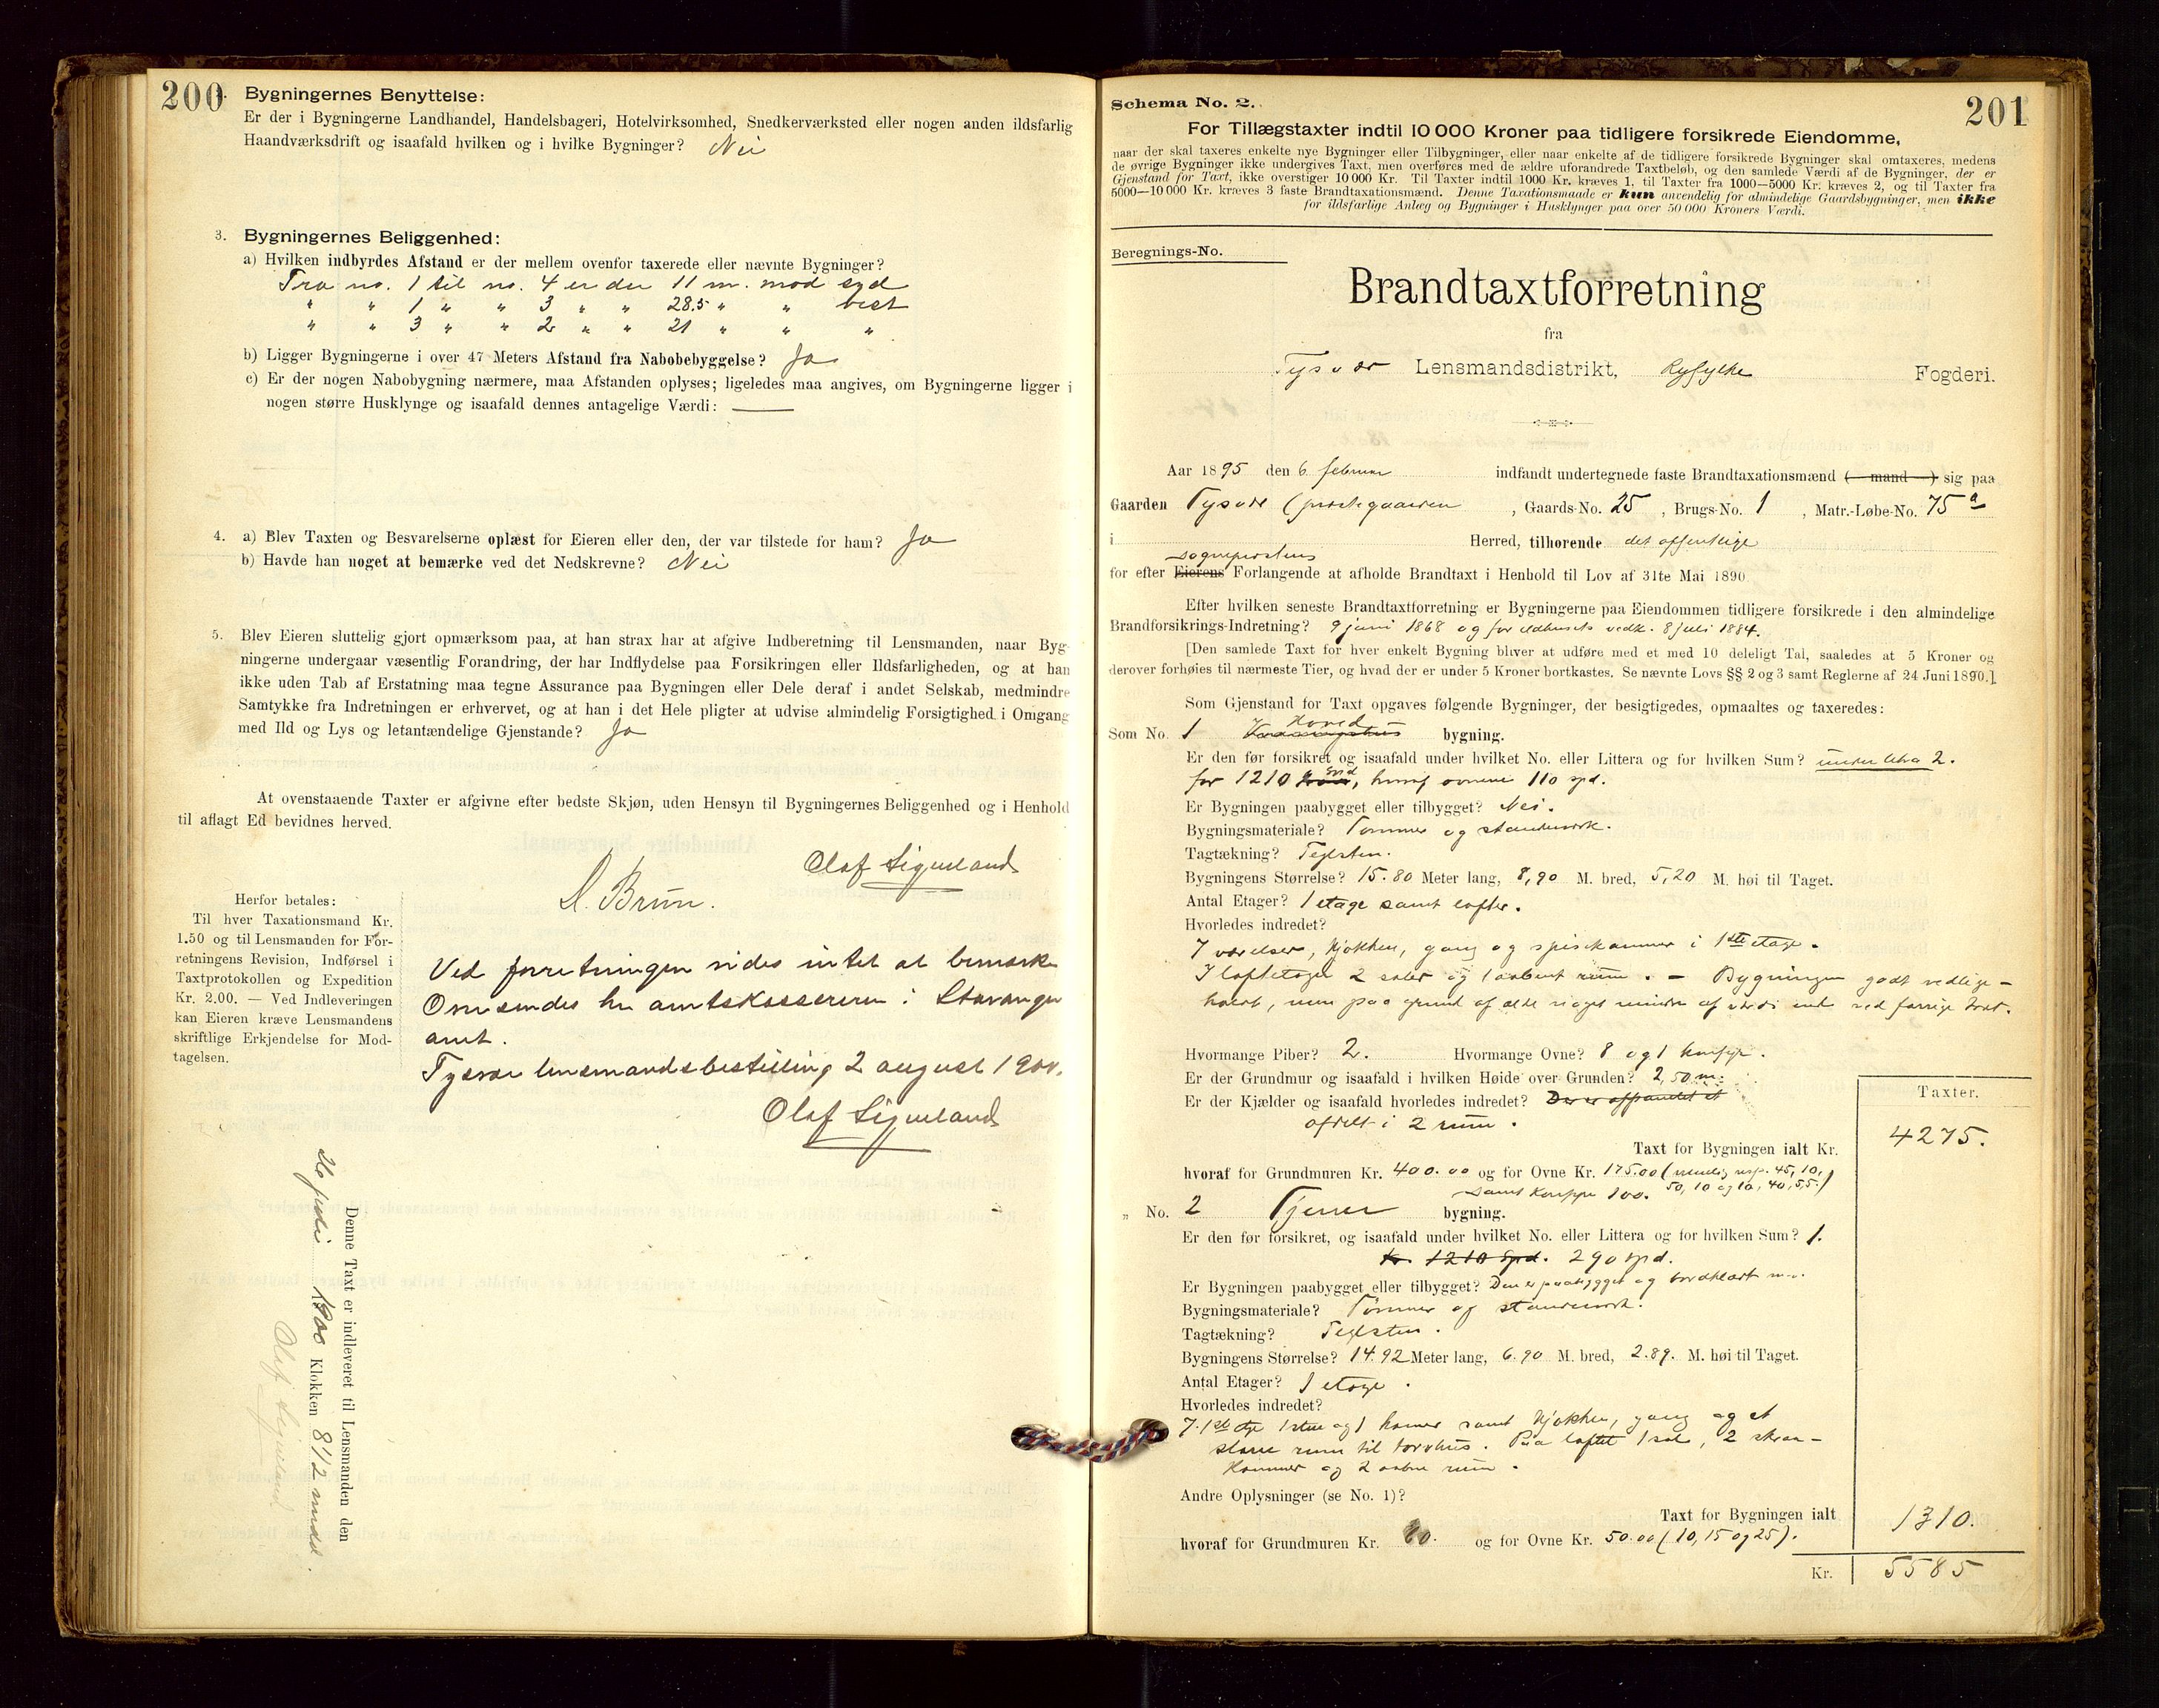 200
Bygningernes Benyttelse:
Er der i Bygningerne Landhandel, Handelsbageri, Hotelvirksomhed, Snedkerværksted eller nogen anden ildsfarlig
Haandværksdrift og isaafald hvilken og i hvilke Bygninger? Nei
3. Bygningernes Beliggenhed:
a) Hvilken indbyrdes Afstand er der mellem ovenfor taxerede eller nævnte Bygninger?
Fra no. 1 til no. 4 er der 11 m. mod syd
" " 1 " " 3 " " 28.5 " " vest
" " 3 " " 2 " " 21 " " "
b) Ligger Bygningerne i over 47 Meters Afstand fra Nabobebyggelse? Ja
c) Er der nogen Nabobygning nærmere, maa Afstanden oplyses; ligeledes maa angives, om Bygningerne ligger i
nogen større Husklynge og isaafald dennes antagelige Værdi: —
4. a) Blev Taxten og Besvarelserne oplæst for Eieren eller den, der var tilstede for ham? Ja
b) Havde han noget at bemærke ved det Nedskrevne? Nei
5. Blev Eieren sluttelig gjort opmærksom paa, at han strax har at afgive Indberetning til Lensmanden, naar Byg-
ningerne undergaar væsentlig Forandring, der har Indflydelse paa Forsikringen eller Ildsfarligheden, og at han
ikke uden Tab af Erstatning maa tegne Assurance paa Bygningen eller Dele deraf i andet Selskab, medmindre
Samtykke fra Indretningen er erhvervet, og at han i det Hele pligter at udvise almindelig Forsigtighed i Omgang
med Ild og Lys og letantændelige Gjenstande? Ja
At ovenstaaende Taxter er afgivne efter bedste Skjøn, uden Hensyn til Bygningernes Beliggenhed og i Henhold
til aflagt Ed bevidnes herved.
Olaf Sigveland
Brun.
Herfor betales:
Til hver Taxationsmand Kr.
1.50 og til Lensmanden for For-
retningens Revision, Indførsel i
Taxtprotokollen og Expedition
Kr. 2.00. — Ved Indleveringen
kan Eieren kræve Lensmandens
skriftlige Erkjendelse for Mod-
tagelsen.
Ved forretningen vides intet at bemærke
Omsendes hr. amtskassereren i Stavanger
amt.
Tysvær lensmandsbestilling 2 august 1900.
Olaf Sigveland
Denne Taxt er indleveret til Lensmanden den
26 juli 1900 Klokken 8 1/2 middd.
Olaf Sigveland
201
Schema No. 2.
For Tillægstaxter indtil 10 000 Kroner paa tidligere forsikrede Eiendomme,
naar der skal taxeres enkelte nye Bygninger eller Tilbygninger, eller naar enkelte af de tidligere forsikrede Bygninger skal omtaxeres, medens
de øvrige Bygninger ikke undergives Taxt, men overføres med de ældre uforandrede Taxtbeløb, og den samlede Værdi af de Bygninger, der er
Gjenstand for Taxt, ikke overstiger 10 000 Kr. Til Taxter indtil 1000 Kr. kræves 1, til Taxter fra 1000—5000 Kr. kræves 2, og til Taxter fra
5000—10 000 Kr. kræves 3 faste Brandtaxationsmænd. Denne Taxationsmaade er kun anvendelig for almindelige Gaardsbygninger, men ikke
for ildsfarlige Anlæg og Bygninger i Husklynger paa over 50 000 Kroners Værdi.
Beregnings-No.
Brandtaxtforretning
fra
Tysvær Lensmandsdistrikt, Ryfylke Fogderi.
Aar 1895 den 6 februar indfandt undertegnede faste Brandtaxationsmænd (— mand —) sig paa
Gaarden Tysvær (prestegaarden , Gaards-No. 25 , Brugs-No. 1 , Matr.-Løbe-No. 75 a
i Herred, tilhørende det offentlige
sogneprestens
for efter Eierens Forlangende at afholde Brandtaxt i Henhold til Lov af 31te Mai 1890
Efter hvilken seneste Brandtaxtforretning er Bygningerne paa Eiendommen tidligere forsikrede i den almindelige
Brandforsikrings-Indretning? 9 juni 1868 og for ildhusets vedk. 8 juli 1884.
[Den samlede Taxt for hver enkelt Bygning bliver at udføre med et med 10 deleligt Tal, saaledes at 5 Kroner og
derover forhøies til nærmeste Tier, og hvad der er under 5 Kroner bortkastes. Se nævnte Lovs §§ 2 og 3 samt Reglerne af 24 Juni 1890.]
Som Gjenstand for Taxt opgaves følgende Bygninger, der besigtigedes, opmaaltes og taxeredes:
Hoved
Som No. 1 bygning.
Er den før forsikret og isaafald under hvilket No. eller Littera og for hvilken Sum? under litra 2.
for 1210 spd, hvoraf ovnene 110 spd.
Er Bygningen paabygget eller tilbygget? Nei.
Bygningsmateriale? Tømmer og standverk.
Tagtækning? Teglsten.
Bygningens Størrelse? 15.80 Meter lang, 8,90 M. bred, 5,20 M. høi til Taget.
Antal Etager? 1 etage samt lofter.
Hvorledes indredet?
7 værelser, kjøkken, gang og spisekammer i 1ste etage.
I loftetagen 2 saler og 1 aabent rum. — Bygningen godt vedlige-
holdt, men paa grund af ælde noget mindre af værdi end ved forrige taxt.
Hvormange Piber? 2. Hvormange Ovne? 8 og 1 komfyr.
Er der Grundmur og isaafald i hvilken Høide over Grunden? 2,50 m.
Er der Kjælder og isaafald hvorledes indredet?
afdelt i 2 rum.
Taxter.
Taxt for Bygningen ialt Kr. 4275.
hvoraf for Grundmuren Kr. 400.00 og for Ovne Kr. 175.00 (nemlig resp. 45, 10,
50, 10 og 10, 40, 5,5.)
samt komfyr 100.
„ No. 2 Tjener bygning.
Er den før forsikret, og isaafald under hvilket No. eller Littera og for hvilken Sum? 1.
Kr. 1210 Spd. 290 spd.
Er Bygningen paabygget eller tilbygget? Den er paabygget og bordklædt
Bygningsmateriale? Tømmer og standverk.
Tagtækning? Teglsten.
Bygningens Størrelse? 14.92 Meter lang, 6.90 M. bred, 2.89. M. høi til Taget.
Antal Etager? 1 etage.
Hvorledes indredet?
I 1ste etge 1 stue og 1 kamer samt kjøkken, gang og et
større rum til torvhus. Paa loftet 1 sal, 2 skraa-
kammer og 2 aabne rum.
Andre Oplysninger (se No. 1)?
Taxt for Bygningen ialt 1310.
hvoraf for Grundmuren Kr. 20. og for Ovne Kr. 50.00 (10, 15 og 25).
Kr. 5585